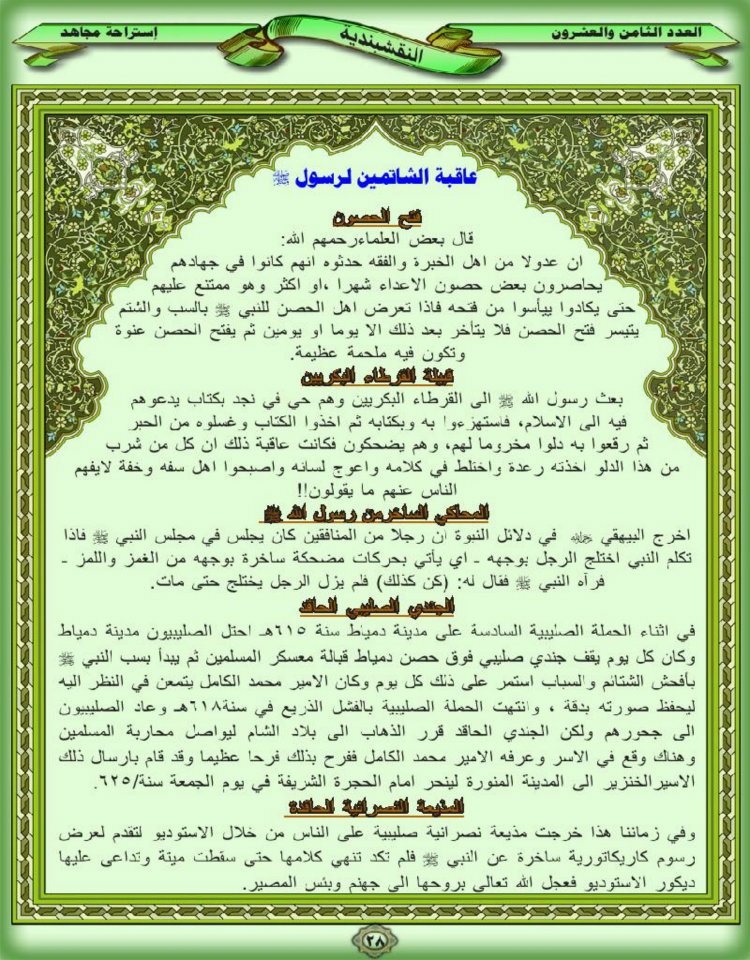 العدد الثامن والعشرون
النقشبندية
إستراحة مجاهد
عاقبة الشاتمين لرسول ﷺ
فتح الحصون
قال بعض العلماءرحمهم الله:
ان عدولا من اهل الخبرة والفقه حدثوه انهم كانوا في جهادهم
يحاصرون بعض حصون الاعداء شهرا ،او اكثر وهو ممتنع عليهم
حتى يكادوا ييأسوا من فتحه فاذا تعرض اهل الحصن للنبي ﷺ بالسب والشتم
يتيسر فتح الحصن فلا يتأخر بعد ذلك الا يوما او يومين ثم يفتح الحصن عنوة
وتكون فيه ملحمة عظيمة.
قبيلة القرطاء البكريين
بعث رسول الله ﷺ الى القرطاء البكريين وهم حي في نجد بكتاب يدعوهم
فيه الى الاسلام، فاستهزءوا به وبكتابه ثم اخذوا الكتاب وغسلوه من الحبر
ثم رقعوا به دلوا مخروما لهم، وهم يضحكون فكانت عاقبة ذلك ان كل من شرب
من هذا الدلو اخذته رعدة واختلط في كلامه واعوج لسانه واصبحوا اهل سفه وخفة لايفهم
الناس عنهم ما يقولون!!
المحاكي الساخرمن رسول الله ﷺ
اخرج البيهقي في دلائل النبوة ان رجلا من المنافقين كان يجلس في مجلس النبي ﷺ فاذا
تكلم النبي اختلج الرجل بوجهه ـ اي يأتي بحركات مضحكة ساخرة بوجهه من الغمز واللمز ـ
فرآه النبي ﷺ فقال له: (كن كذلك) فلم يزل الرجل يختلج حتى مات.
الجندي الصليبي الحاقد
في اثناء الحملة الصليبية السادسة على مدينة دمياط سنة ٦١٥هـ احتل الصليبيون مدينة دمياط
وكان كل يوم يقف جندي صليبي فوق حصن دمياط قبالة معسكر المسلمين ثم يبدأ بسب النبي ﷺ
بأفحش الشتائم والسباب استمر على ذلك كل يوم وكان الامير محمد الكامل يتمعن في النظر اليه
ليحفظ صورته بدقة ، وانتهت الحملة الصليبية بالفشل الذريع في سنة٦١٨هـ وعاد الصليبيون
الى جحورهم ولكن الجندي الحاقد قرر الذهاب الى بلاد الشام ليواصل محاربة المسلمين
وهناك وقع في الاسر وعرفه الامير محمد الكامل ففرح بذلك فرحا عظيما وقد قام بارسال ذلك
الاسيرالخنزير الى المدينة المنورة لينحر امام الحجرة الشريفة في يوم الجمعة سنة/٦٢٥.
المذيعة النصرانية الحاقدة
وفي زماننا هذا خرجت مذيعة نصرانية صليبية على الناس من خلال الاستوديو لتقدم لعرض
رسوم كاريكاتورية ساخرة عن النبي ﷺ فلم تكد تنهي كلامها حتى سقطت ميتة وتداعى عليها
ديكور الاستوديو فعجل الله تعالى بروحها الى جهنم وبئس المصير.
٢٨